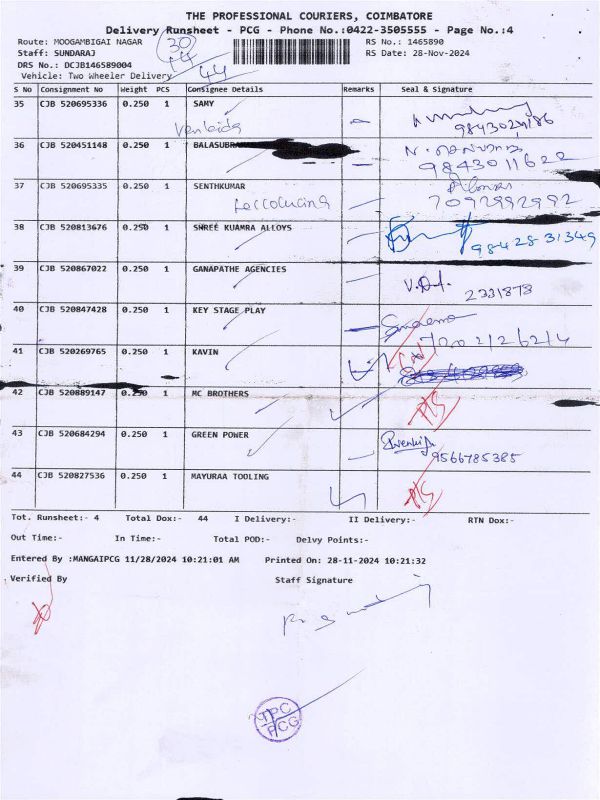 THE PROFESSIONAL COURIERS, COIMBATORE
Delivery Runsheet - PCG - Phone No.:0422-3505555 - Page No.:4
Route: MOOGAMBIGAI NAGAR 30 RS No.: 1465890
Staff: SUNDARAJ 14 RS Date: 28-Nov-2024
DRS No.: DCJB146589004
Vehicle: Two Wheeler Delivery 44
S No Consignment No Weight PCS Consignee Details Remarks Seal & Signature
35 CJB 520695336 0.250 1 SAMY
9843024186
36 CJB 520451148 0.250 1
9843011622
37 CJB 520695335 0.250 1 SENTHKUMAR
7092992992
38 CJB 520813676 0.250 1 SHREE KUAMRA ALLOYS
98428 31349
39 CJB 520867022 0.250 1 GANAPATHE AGENCIES
2331878
40 CJB 520847428 0.250 1 KEY STAGE PLAY
41 CJB 520269765 0.250 1 KAVIN
42 CJB 520889147 0.250 1 MC BROTHERS P/S
43 CJB 520684294 0.250 1 GREEN POWER
9566785385
44 CJB 520827536 0.250 1 MAYURAA TOOLING P/S
Tot. Runsheet:- 4 Total Dox:- 44 I Delivery:- II Delivery:- RTN Dox:-
Out Time:- In Time:- Total POD:- Delvy Points:-
Entered By :MANGAIPCG 11/28/2024 10:21:01 AM Printed On: 28-11-2024 10:21:32
Verified By Staff Signature
TPC
PCG